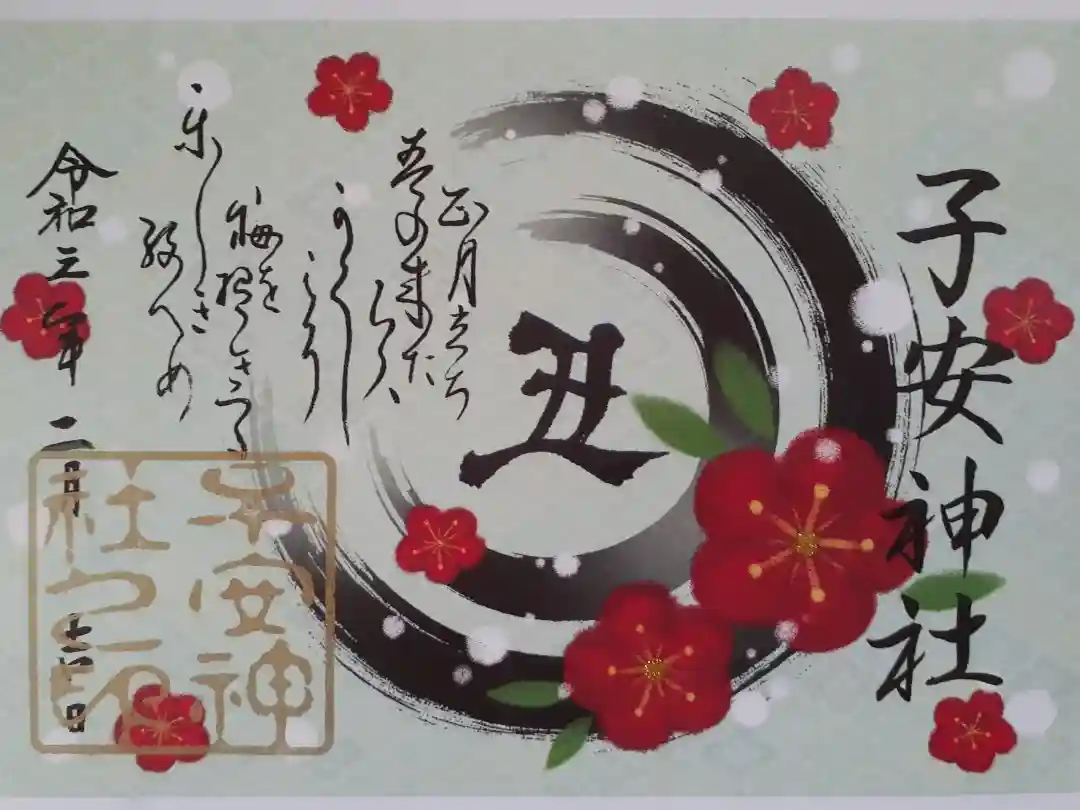 子安神社
丑
正月立ち
春の来た
らば
かくし
こそ
梅を
招きつつ
楽しき
終へめ
令和三年 二月 日
子安神
社之印